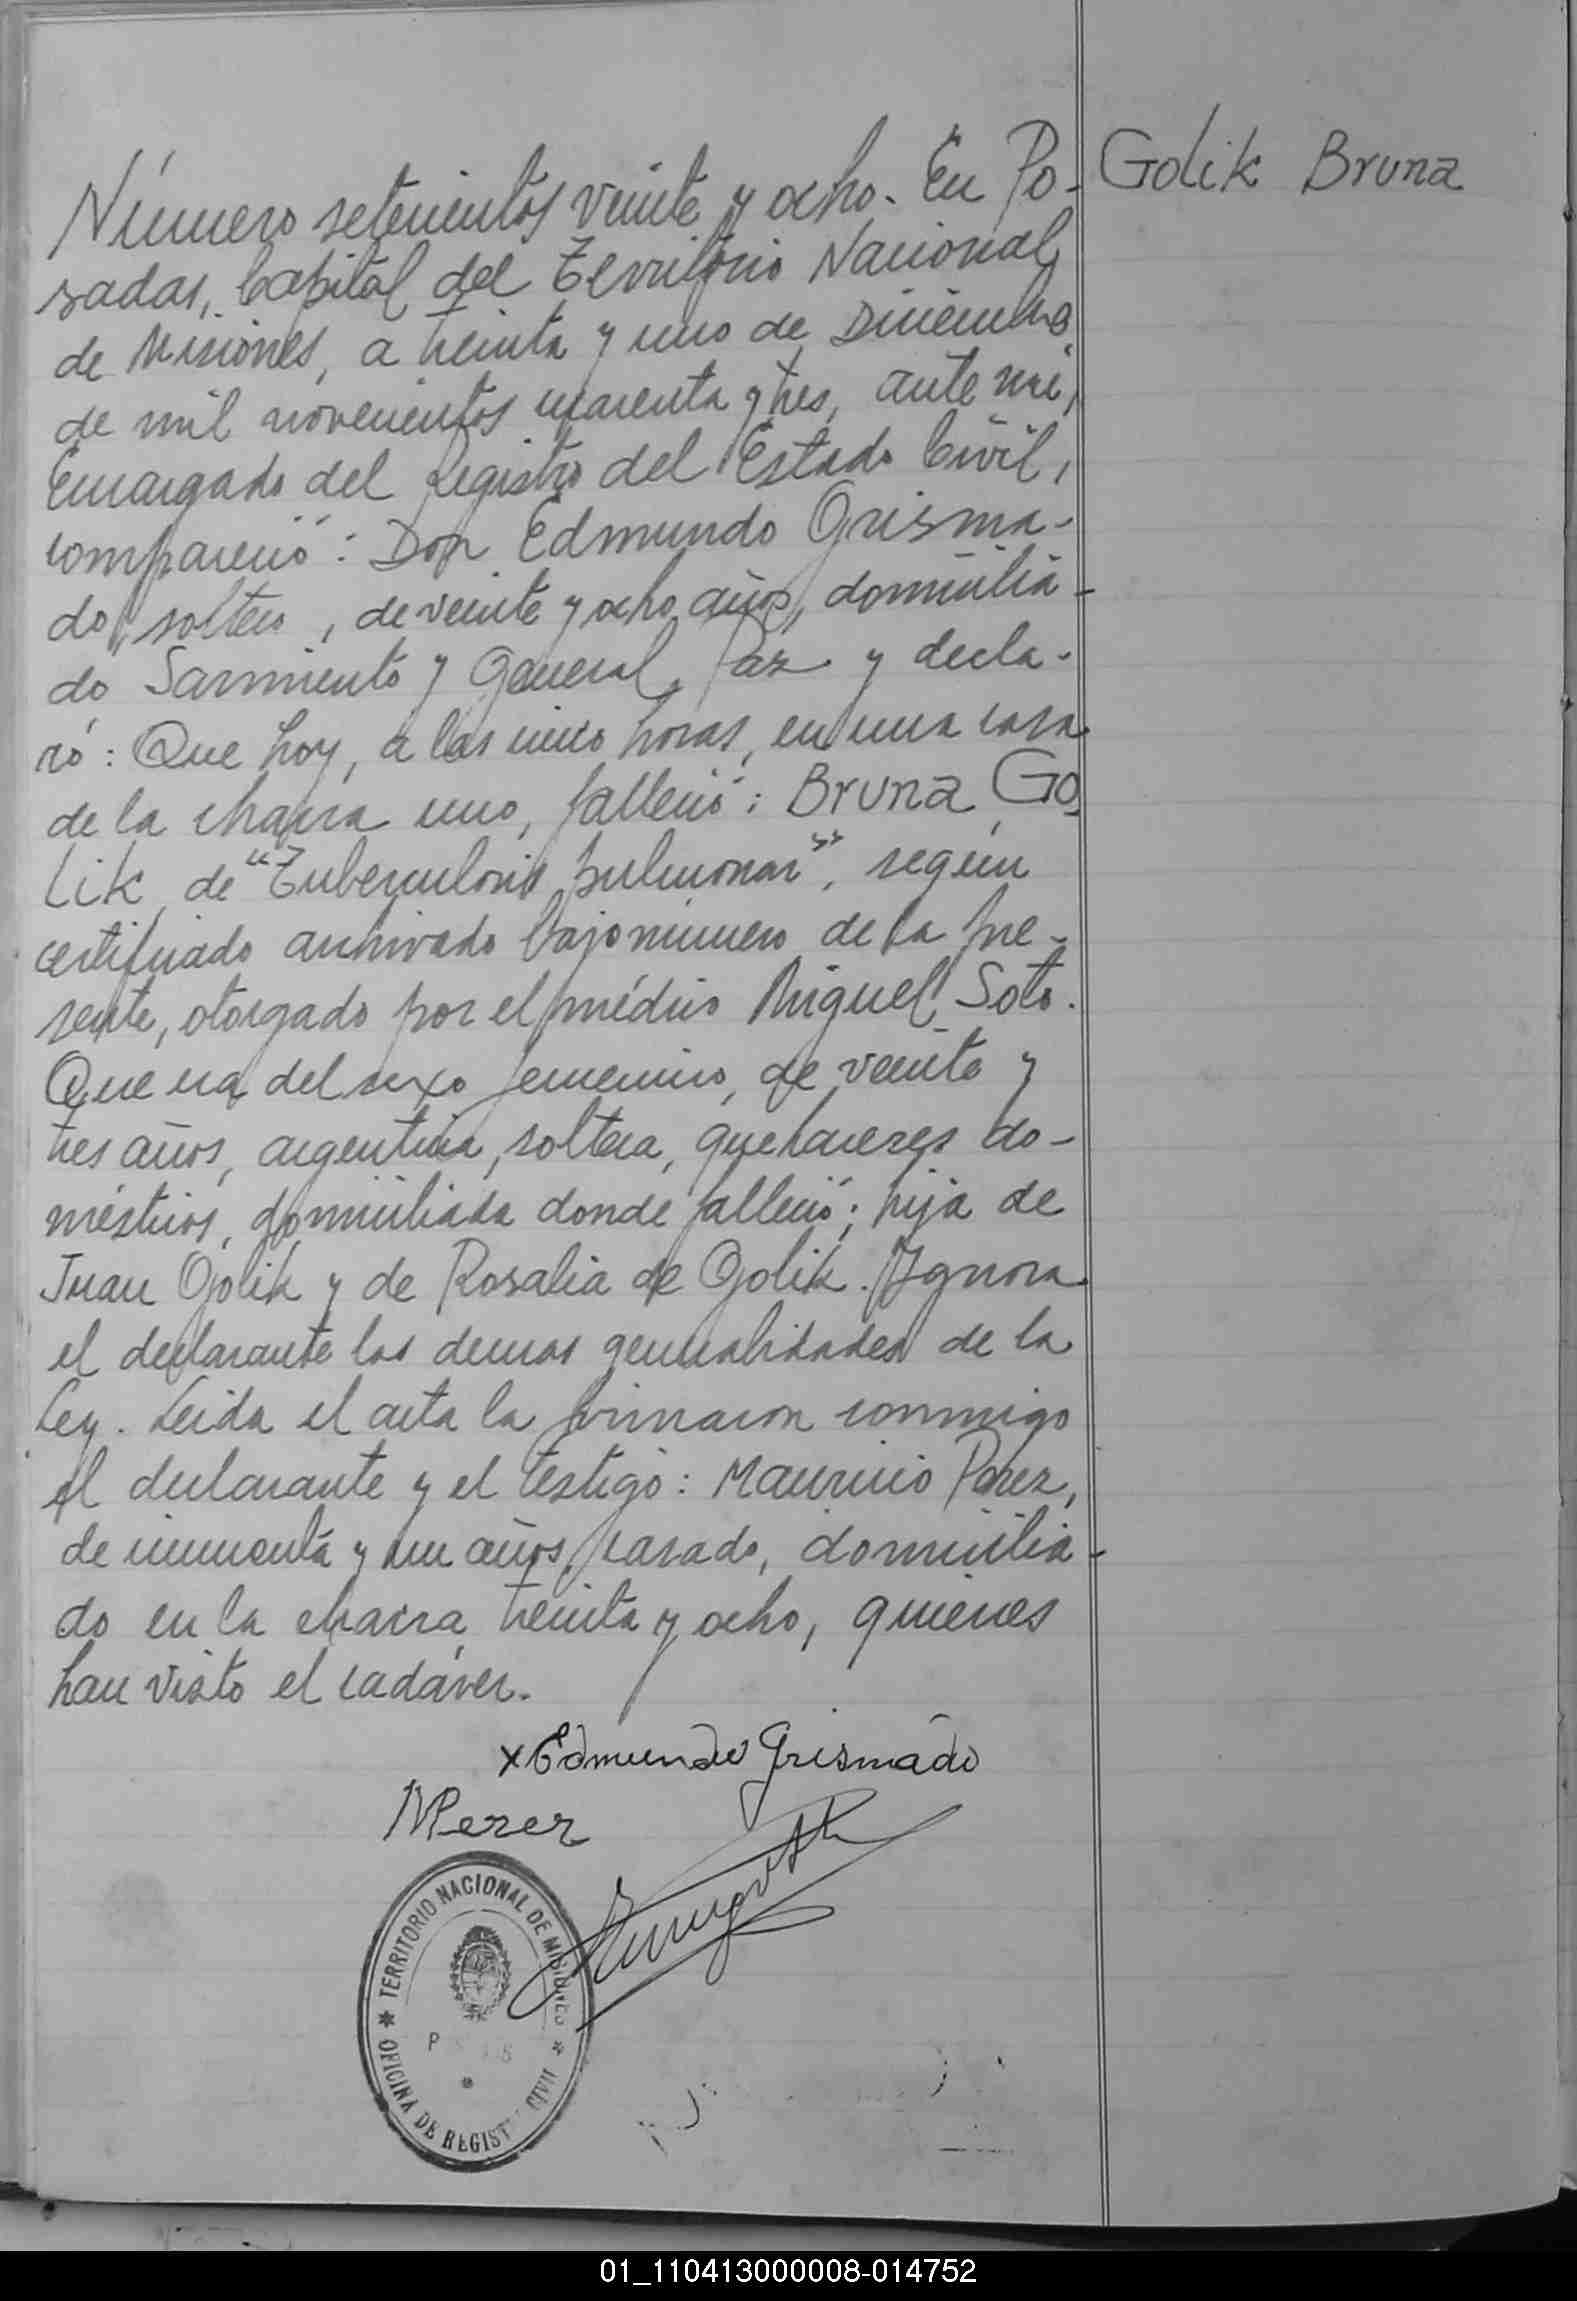 Golik Bruna
Número setecientos veinte y ocho. En Po-
sadas, Capital del Territorio Nacional
de Misiones, a treinta y uno de Diciembre
de mil novecientos cuarenta y tres, ante mí,
Encargado del Registro del Estado Civil,
compareció: Don Edmundo Grisma-
do, soltero, de veinte y ocho años, domicilia-
do Sarmiento y General Paz y decla-
ró: Que hoy, a las cinco horas, en una casa
de la chacra uno, falleció: Bruna Go-
lik de "Tuberculosis pulmonar", según
certificado archivado bajo número de la pre-
sente, otorgado por el médico Miguel Soto.
Que era del sexo femenino, de veinte y
tres años, argentina, soltera, quehaceres do-
mésticos, domiciliada donde falleció; hija de
Juan Golik y de Rosalia de Golik. Ignora
el declarante las demas generalidades de la
Ley. Leida el acta la firmaron conmigo
el declarante y el testigo: Mauricio Perez,
de cincuenta y un años, casado, domicilia-
do en la chacra treinta y ocho, quienes
han visto el cadáver.
x Edmundo Grismado
M Perez
TERRITORIO NACIONAL DE MISIONES
OFICINA DE REGISTRO CIVIL
01_110413000008-014752